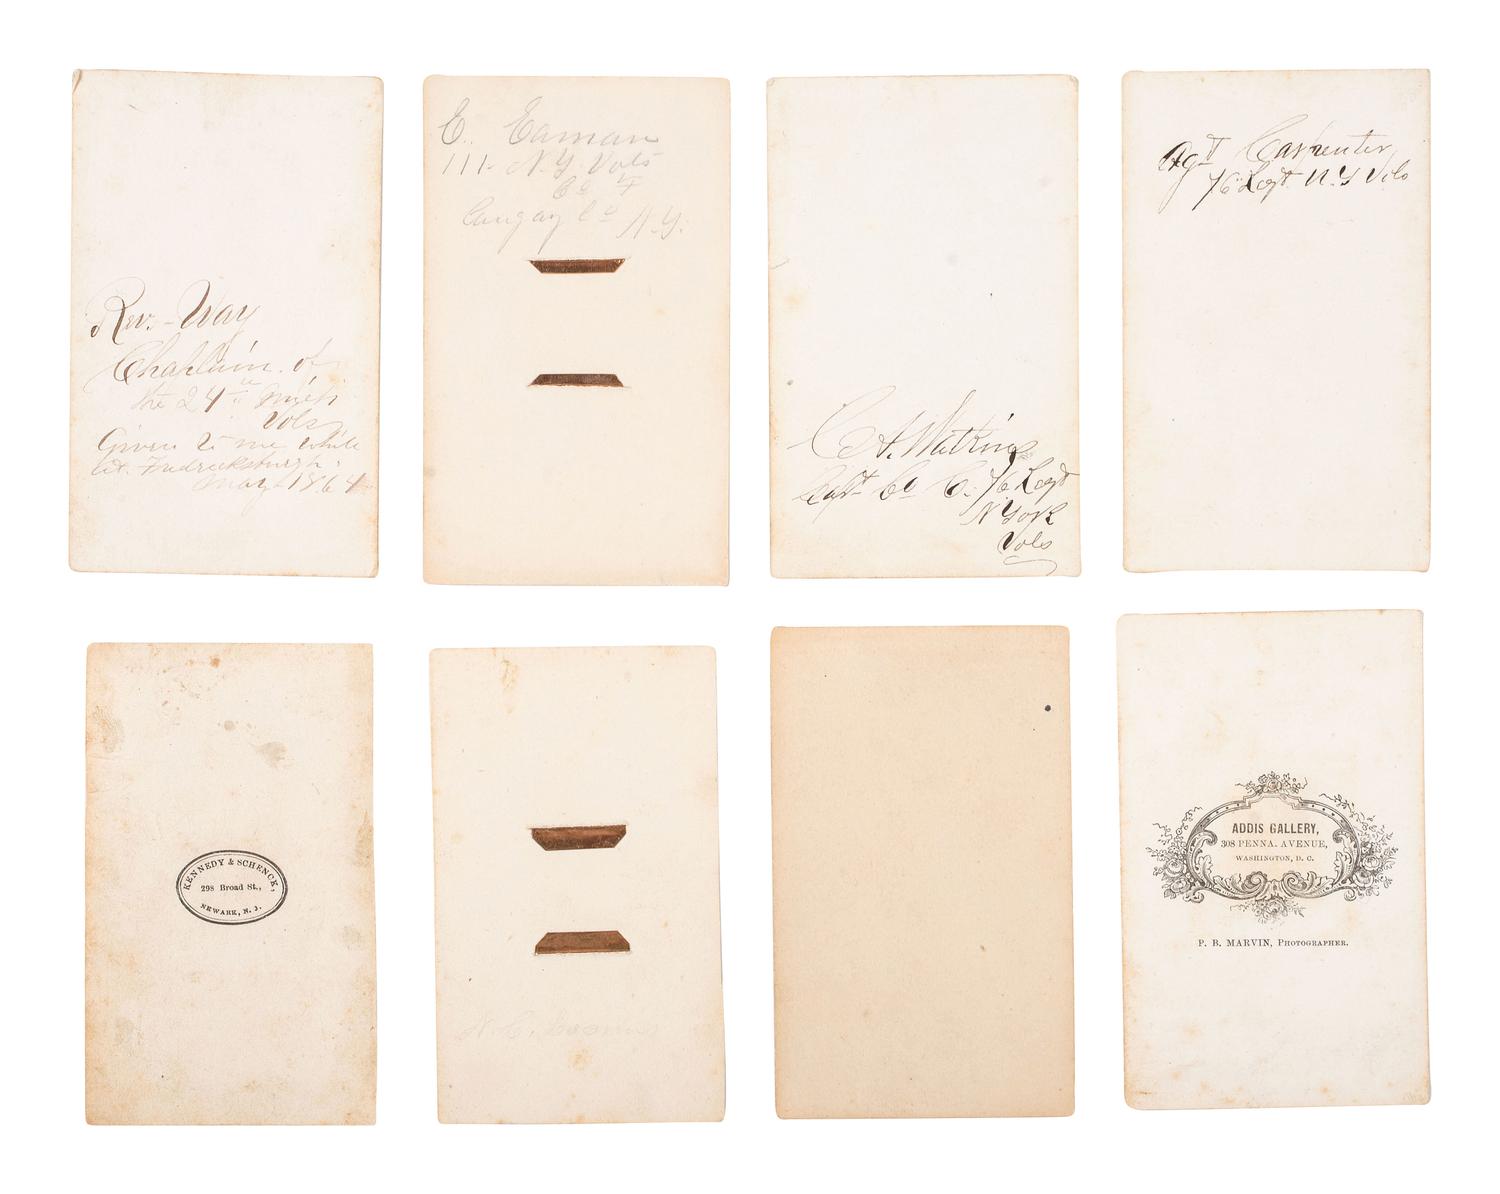 Rev. Way
Chaplain of
the 24th Mich
Vols
Given to me while
at Fredricksburgh
May 1864
E. Eaman
111 N.Y. Vols
Co F
Caugay Co N.Y.
C A. Watkins
Capt Co C. 76 Regt
N York
Vols
Carpenter
76 Regt N.Y Vols
KENNEDY & SCHENCK,
298 Broad St.,
NEWARK, N. J.
ADDIS GALLERY,
308 PENNA. AVENUE,
WASHINGTON, D. C.
P. B. MARVIN, PHOTOGRAPHER.